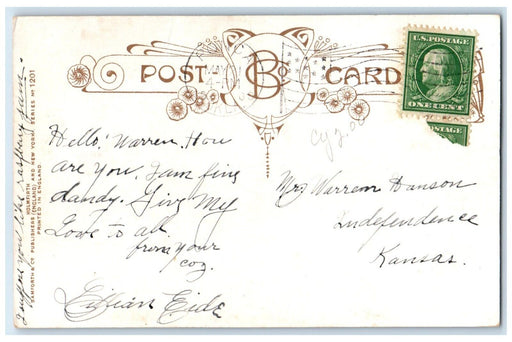 POST CARD
B Co
U.S. POSTAGE
ONE CENT
POSTAGE
Cy 2.00
Hello! Warren, How
are you, I am fine
dandy. Give My
Love to all.
from your
coz.
Lilian Eide
Mr. Warren Hanson
Independence
Kansas.
I suppose you like raspberry jam.
BAMFORTH & CO. PUBLISHERS HOLMFIRTH (ENGLAND) AND NEW YORK SERIES No 1201
PRINTED IN ENGLAND